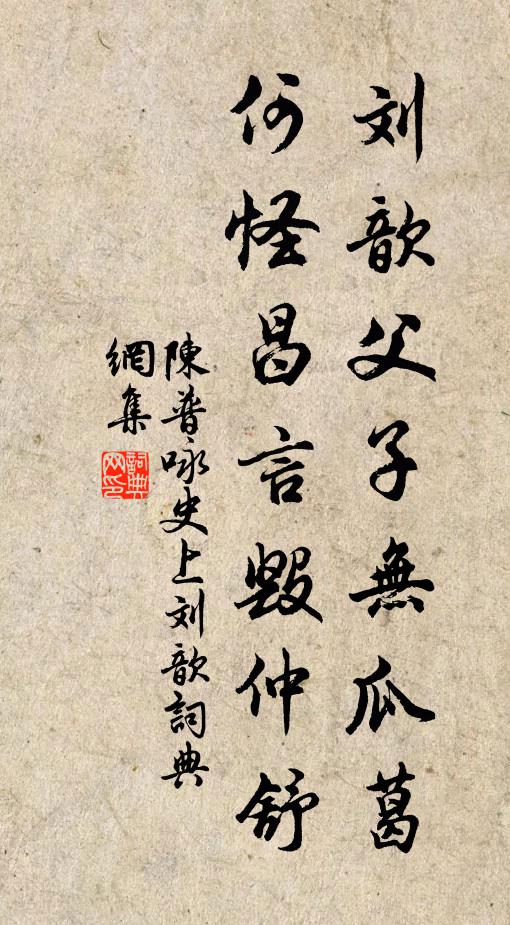 刘歆父子無瓜葛
何怪昌言毀仲舒
陳普咏史上刘歆詞典
網集
詞典網印